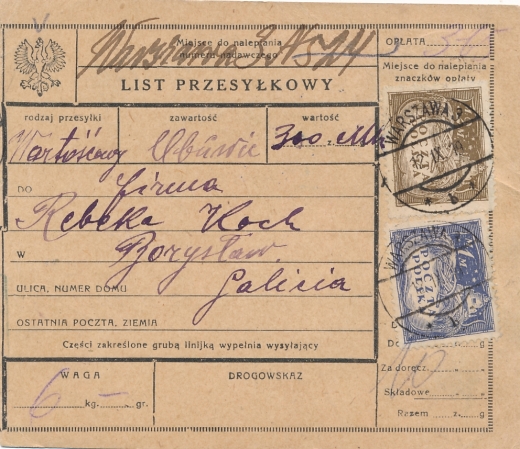 Warszawa 1 N 524
Miejsce do nalepiania
numeru nadawczego
OPŁATA
LIST PRZESYŁKOWY
Miejsce do nalepiania
znaczków opłaty
rodzaj przesyłki zawartość wartość
Wartościowy Obuwie 300 Mk
WARSZAWA
DO Firma
Rebeka Koch
W Borysław
Galicia
ULICA, NUMER DOMU
OSTATNIA POCZTA, ZIEMIA
Części zakreślone grubą linijką wypełnia wysyłający
WARSZAWA
POCZTA
POLSKA
WAGA DROGOWSKAZ
6 kg. — gr.
Do
Za doręcz.
Składowe
Razem z. g